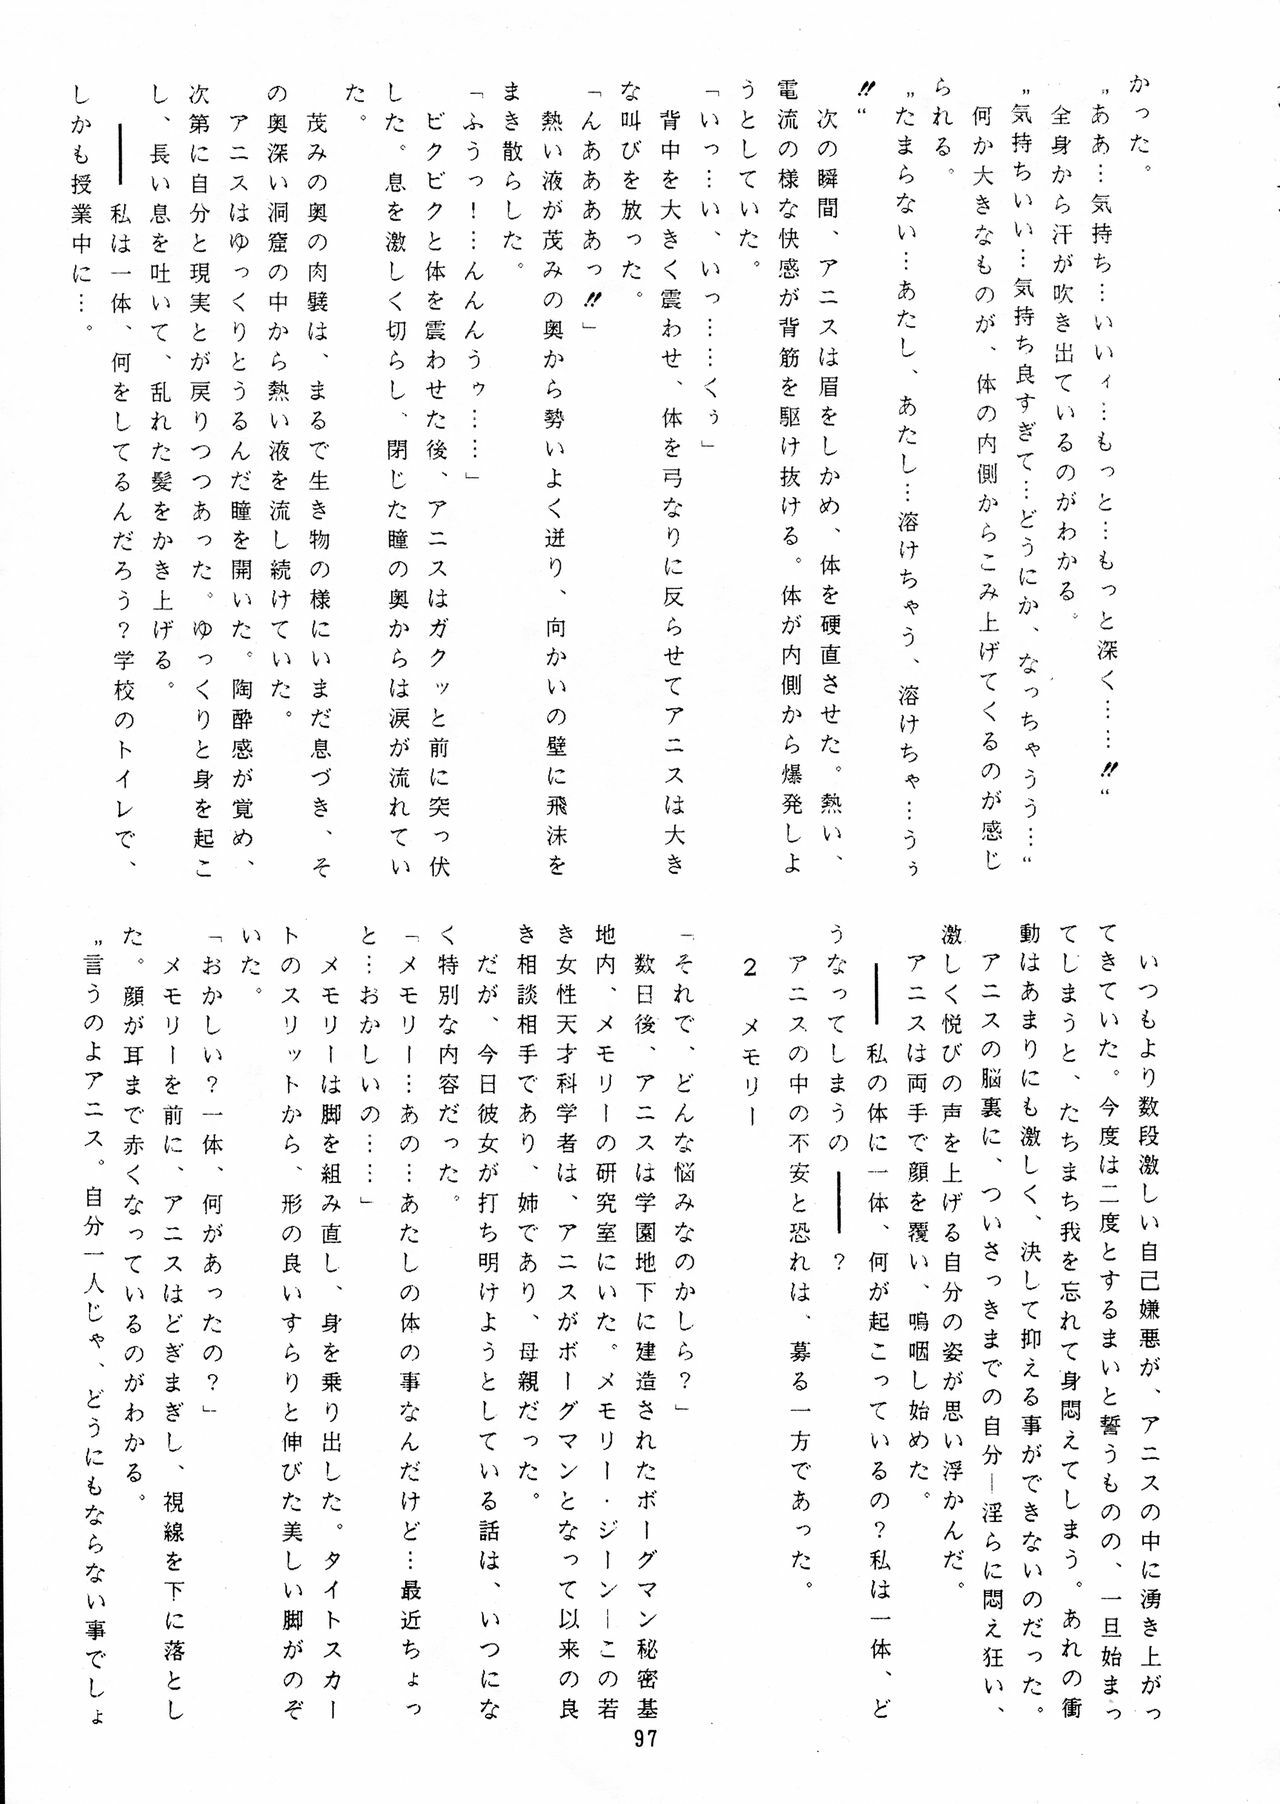 かった。
〝ああ…気持ち…いいィ…もっと…もっと深く……!!〟
全身から汗が吹き出ているのがわかる。
〝気持ちいい…気持ち良すぎて…どうにか、なっちゃうう…〟
何か大きなものが、体の内側からこみ上げてくるのが感じ
られる。
〝たまらない…あたし、あたし…溶けちゃう、溶けちゃ…うぅ
!!〟
次の瞬間、アニスは眉をしかめ、体を硬直させた。熱い、
電流の様な快感が背筋を駆け抜ける。体が内側から爆発しよ
うとしていた。
「いっ…い、いっ……くぅ」
背中を大きく震わせ、体を弓なりに反らせてアニスは大き
な叫びを放った。
「んあああっ!!」
熱い液が茂みの奥から勢いよく迸り、向かいの壁に飛沫を
まき散らした。
「ふうっ！…んんんうゥ……」
ビクビクと体を震わせた後、アニスはガクッと前に突っ伏
した。息を激しく切らし、閉じた瞳の奥からは涙が流れてい
た。
茂みの奥の肉襞は、まるで生き物の様にいまだ息づき、そ
の奥深い洞窟の中から熱い液を流し続けていた。
アニスはゆっくりとうるんだ瞳を開いた。陶酔感が覚め、
次第に自分と現実とが戻りつつあった。ゆっくりと身を起こ
し、長い息を吐いて、乱れた髪をかき上げる。
――私は一体、何をしてるんだろう？学校のトイレで、
しかも授業中に…。
いつもより数段激しい自己嫌悪が、アニスの中に湧き上がっ
てきていた。今度は二度とするまいと誓うものの、一旦始まっ
てしまうと、たちまち我を忘れて身悶えてしまう。あれの衝
動はあまりにも激しく、決して抑える事ができないのだった。
アニスの脳裏に、ついさっきまでの自分―淫らに悶え狂い、
激しく悦びの声を上げる自分の姿が思い浮かんだ。
アニスは両手で顔を覆い、嗚咽し始めた。
――私の体に一体、何が起こっているの？私は一体、ど
うなってしまうの――？
アニスの中の不安と恐れは、募る一方であった。
2　メモリー
「それで、どんな悩みなのかしら？」
数日後、アニスは学園地下に建造されたボーグマン秘密基
地内、メモリーの研究室にいた。メモリー・ジーン―この若
き女性天才科学者は、アニスがボーグマンとなって以来の良
き相談相手であり、姉であり、母親だった。
だが、今日彼女が打ち明けようとしている話は、いつにな
く特別な内容だった。
「メモリー…あの…あたしの体の事なんだけど…最近ちょっ
と…おかしいの……」
メモリーは脚を組み直し、身を乗り出した。タイトスカー
トのスリットから、形の良いすらりと伸びた美しい脚がのぞ
いた。
「おかしい？一体、何があったの？」
メモリーを前に、アニスはどぎまぎし、視線を下に落とし
た。顔が耳まで赤くなっているのがわかる。
〝言うのよアニス。自分一人じゃ、どうにもならない事でしょ
97